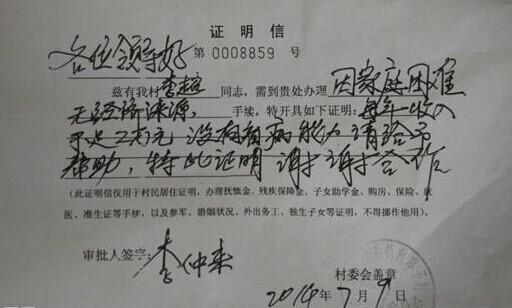 证明信
各位领导好
第 0008859 号
兹有我村李超同志，需到贵处办理因家庭困难
无经济来源，手续，特开具如下证明：每年收入
不足2万元 没有看病能力 请给予
帮助，特此证明 谢谢合作
(此证明信仅用于村民居住证明，办理抚恤金、残疾保障金、子女助学金、购房、保险、就
医、准生证等手续，以及参军、婚姻状况、外出务工、独生子女等证明，不得挪作他用)
审批人签字：李仲来
村委会盖章
2014年7月9日